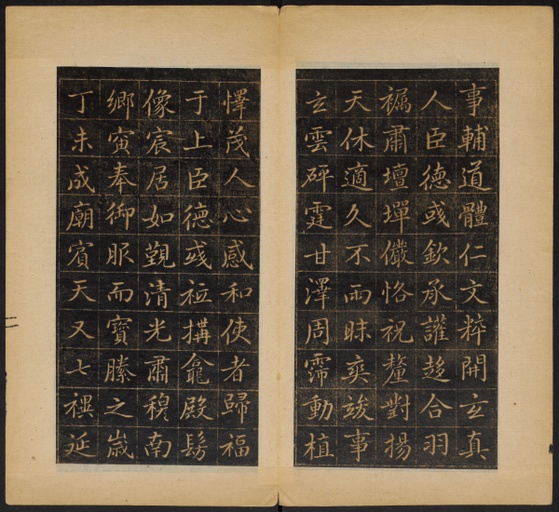 事輔道體仁文粹開玄真
人臣德彧欽承讙趍合羽
褐肅壇墠儼恪祝釐對揚
天休適久不雨昧爽竣事
玄雲砰霆甘澤周霈動植
懌茂人心感和使者歸福
于上臣德彧祗搆龕殿髣
像宸居如覲清光肅穆南
鄉寅奉御服而寶縢之歲
丁未成廟賓天又七禩延